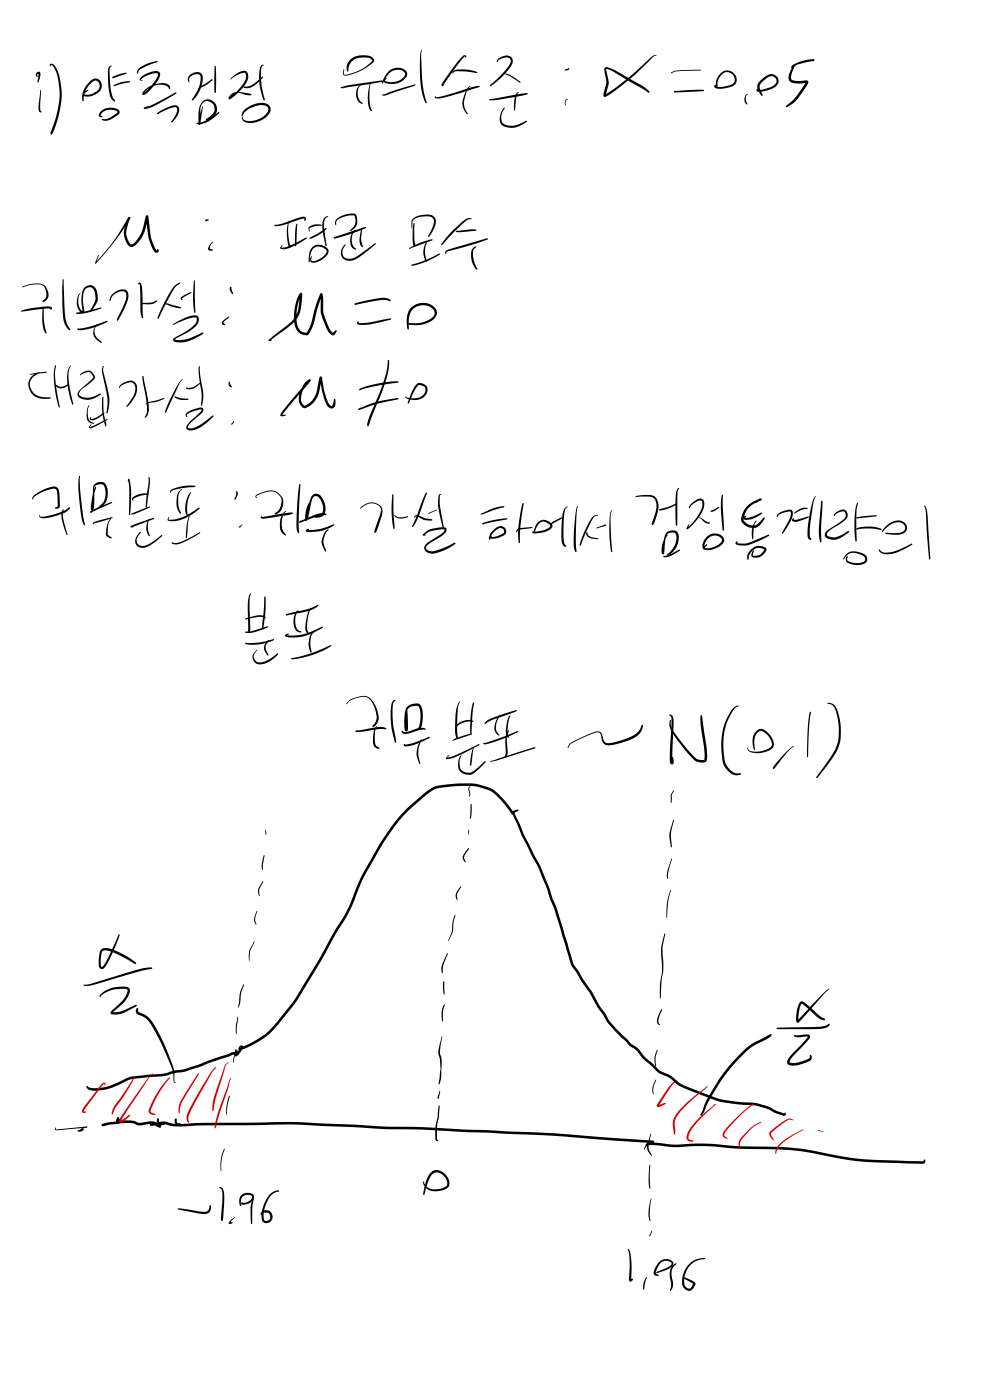 i) 양측검정 유의수준 : α = 0.05
μ : 평균 모수
귀무가설 : μ = 0
대립가설 : μ ≠ 0
귀무분포 : 귀무 가설 하에서 검정통계량의
분포
귀무 분포 ~ N(0,1)
α/2
α/2
-1.96
0
1.96